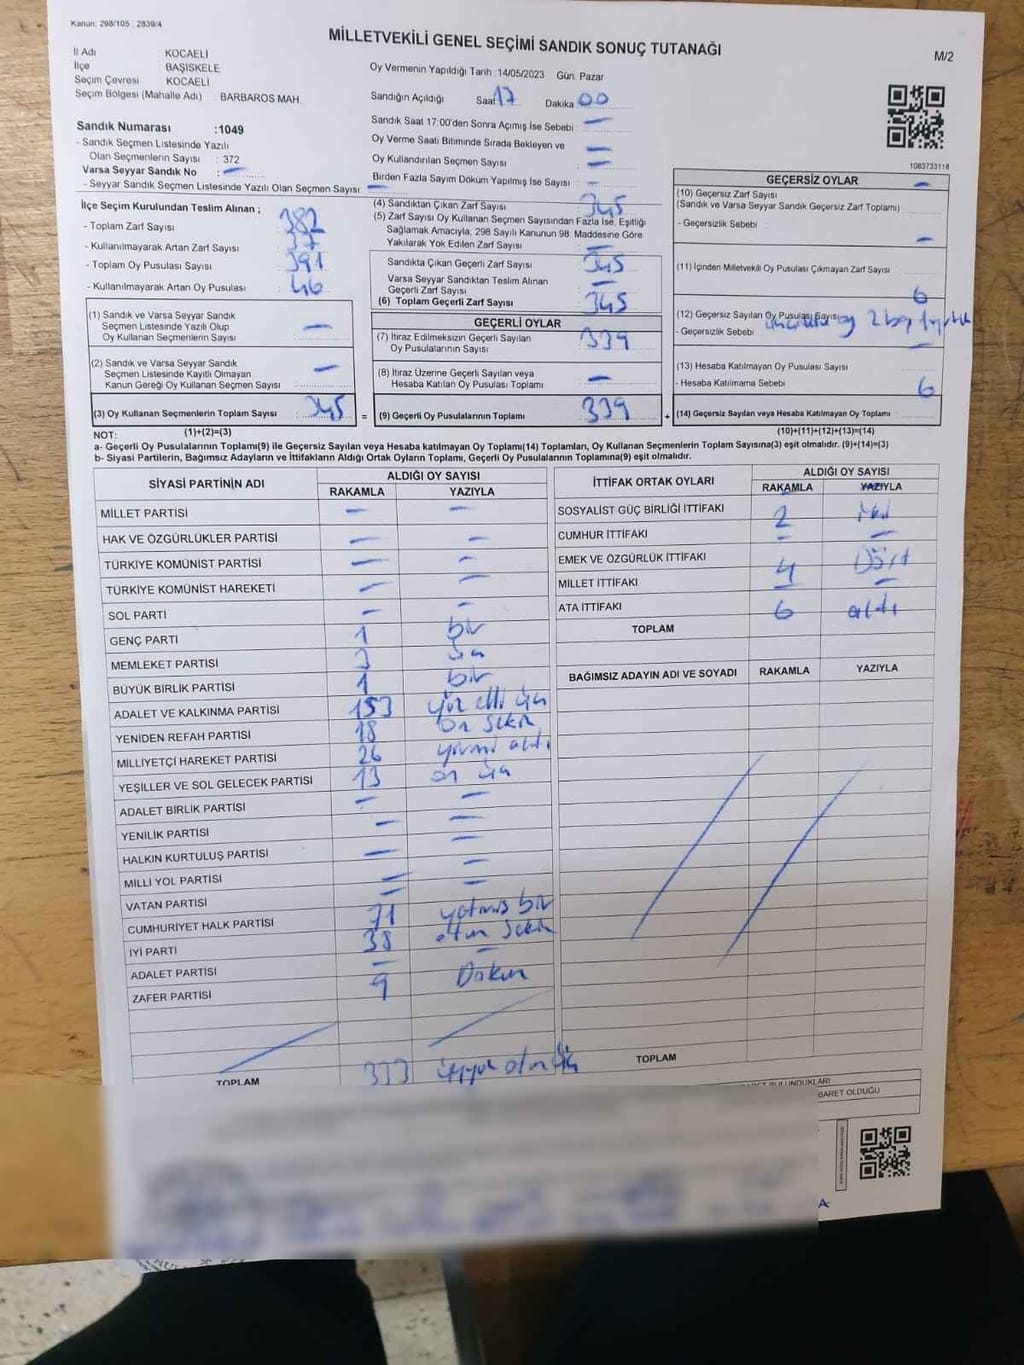 Kanun: 298/105 , 2839/4
MİLLETVEKİLİ GENEL SEÇİMİ SANDIK SONUÇ TUTANAĞI
M/2
İl Adı KOCAELİ
İlçe BAŞİSKELE
Seçim Çevresi KOCAELİ
Seçim Bölgesi (Mahalle Adı) BARBAROS MAH.
Sandık Numarası :1049
- Sandık Seçmen Listesinde Yazılı
Olan Seçmenlerin Sayısı : 372
Varsa Seyyar Sandık No : -
- Seyyar Sandık Seçmen Listesinde Yazılı Olan Seçmen Sayısı : -
Oy Vermenin Yapıldığı Tarih :14/05/2023 Gün: Pazar
Sandığın Açıldığı Saat 17 Dakika 00
Sandık Saat 17:00'den Sonra Açımış İse Sebebi -
Oy Verme Saati Bitiminde Sırada Bekleyen ve -
Oy Kullandırılan Seçmen Sayısı -
Birden Fazla Sayım Döküm Yapılmış İse Sayısı -
1083733118
İlçe Seçim Kurulundan Teslim Alınan ;
- Toplam Zarf Sayısı : 382
- Kullanılmayarak Artan Zarf Sayısı : 37
- Toplam Oy Pusulası Sayısı : 391
- Kullanılmayarak Artan Oy Pusulası : 46
(1) Sandık ve Varsa Seyyar Sandık
Seçmen Listesinde Yazılı Olup
Oy Kullanan Seçmenlerin Sayısı : -
(2) Sandık ve Varsa Seyyar Sandık
Seçmen Listesinde Kayıtlı Olmayan
Kanun Gereği Oy Kullanan Seçmen Sayısı : -
(3) Oy Kullanan Seçmenlerin Toplam Sayısı : 345 =
(1)+(2)=(3)
(4) Sandıktan Çıkan Zarf Sayısı 345
(5) Zarf Sayısı Oy Kullanan Seçmen Sayısından Fazla İse, Eşitliği
Sağlamak Amacıyla, 298 Sayılı Kanunun 98. Maddesine Göre
Yakılarak Yok Edilen Zarf Sayısı -
Sandıkta Çıkan Geçerli Zarf Sayısı 345
Varsa Seyyar Sandıktan Teslim Alınan
Geçerli Zarf Sayısı -
(6) Toplam Geçerli Zarf Sayısı 345
GEÇERLİ OYLAR
(7) İtiraz Edilmeksizin Geçerli Sayılan
Oy Pusulalarının Sayısı 339
(8) İtiraz Üzerine Geçerli Sayılan veya
Hesaba Katılan Oy Pusulası Toplamı -
(9) Geçerli Oy Pusulalarının Toplamı 339 +
GEÇERSİZ OYLAR
(10) Geçersiz Zarf Sayısı -
(Sandık ve Varsa Seyyar Sandık Geçersiz Zarf Toplamı)
- Geçersizlik Sebebi :
(11) İçinden Milletvekili Oy Pusulası Çıkmayan Zarf Sayısı -
(12) Geçersiz Sayılan Oy Pusulası Sayısı 6
- Geçersizlik Sebebi
(13) Hesaba Katılmayan Oy Pusulası Sayısı -
- Hesaba Katılmama Sebebi
(14) Geçersiz Sayılan veya Hesaba Katılmayan Oy Toplamı 6
(10)+(11)+(12)+(13)=(14)
NOT:
a- Geçerli Oy Pusulalarının Toplamı(9) ile Geçersiz Sayılan veya Hesaba katılmayan Oy Toplamı(14) Toplamları, Oy Kullanan Seçmenlerin Toplam Sayısına(3) eşit olmalıdır. (9)+(14)=(3)
b- Siyasi Partilerin, Bağımsız Adayların ve İttifakların Aldığı Ortak Oyların Toplamı, Geçerli Oy Pusulalarının Toplamına(9) eşit olmalıdır.
SİYASİ PARTİNİN ADI ALDIĞI OY SAYISI
RAKAMLA YAZIYLA
MİLLET PARTİSİ - -
HAK VE ÖZGÜRLÜKLER PARTİSİ - -
TÜRKİYE KOMÜNİST PARTİSİ - -
TÜRKİYE KOMÜNİST HAREKETİ - -
SOL PARTİ - -
GENÇ PARTİ 1 bir
MEMLEKET PARTİSİ 3 üç
BÜYÜK BİRLİK PARTİSİ 1 bir
ADALET VE KALKINMA PARTİSİ 153 yüz elli üç
YENİDEN REFAH PARTİSİ 18 on sekiz
MİLLİYETÇİ HAREKET PARTİSİ 26 yirmi altı
YEŞİLLER VE SOL GELECEK PARTİSİ 13 on üç
ADALET BİRLİK PARTİSİ - -
YENİLİK PARTİSİ - -
HALKIN KURTULUŞ PARTİSİ - -
MİLLİ YOL PARTİSİ - -
VATAN PARTİSİ -
CUMHURİYET HALK PARTİSİ 71 yetmiş bir
İYİ PARTİ 38 otuz sekiz
ADALET PARTİSİ - -
ZAFER PARTİSİ 9 Dokuz
TOPLAM 333 üçyüz otuz üç
İTTİFAK ORTAK OYLARI ALDIĞI OY SAYISI
RAKAMLA YAZIYLA
SOSYALİST GÜÇ BİRLİĞİ İTTİFAKI 2 iki
CUMHUR İTTİFAKI - -
EMEK VE ÖZGÜRLÜK İTTİFAKI 4 Dört
MİLLET İTTİFAKI - -
ATA İTTİFAKI 6 altı
TOPLAM
BAĞIMSIZ ADAYIN ADI VE SOYADI RAKAMLA YAZIYLA
TOPLAM
BULUNDUKLARI
BARET OLDUĞU